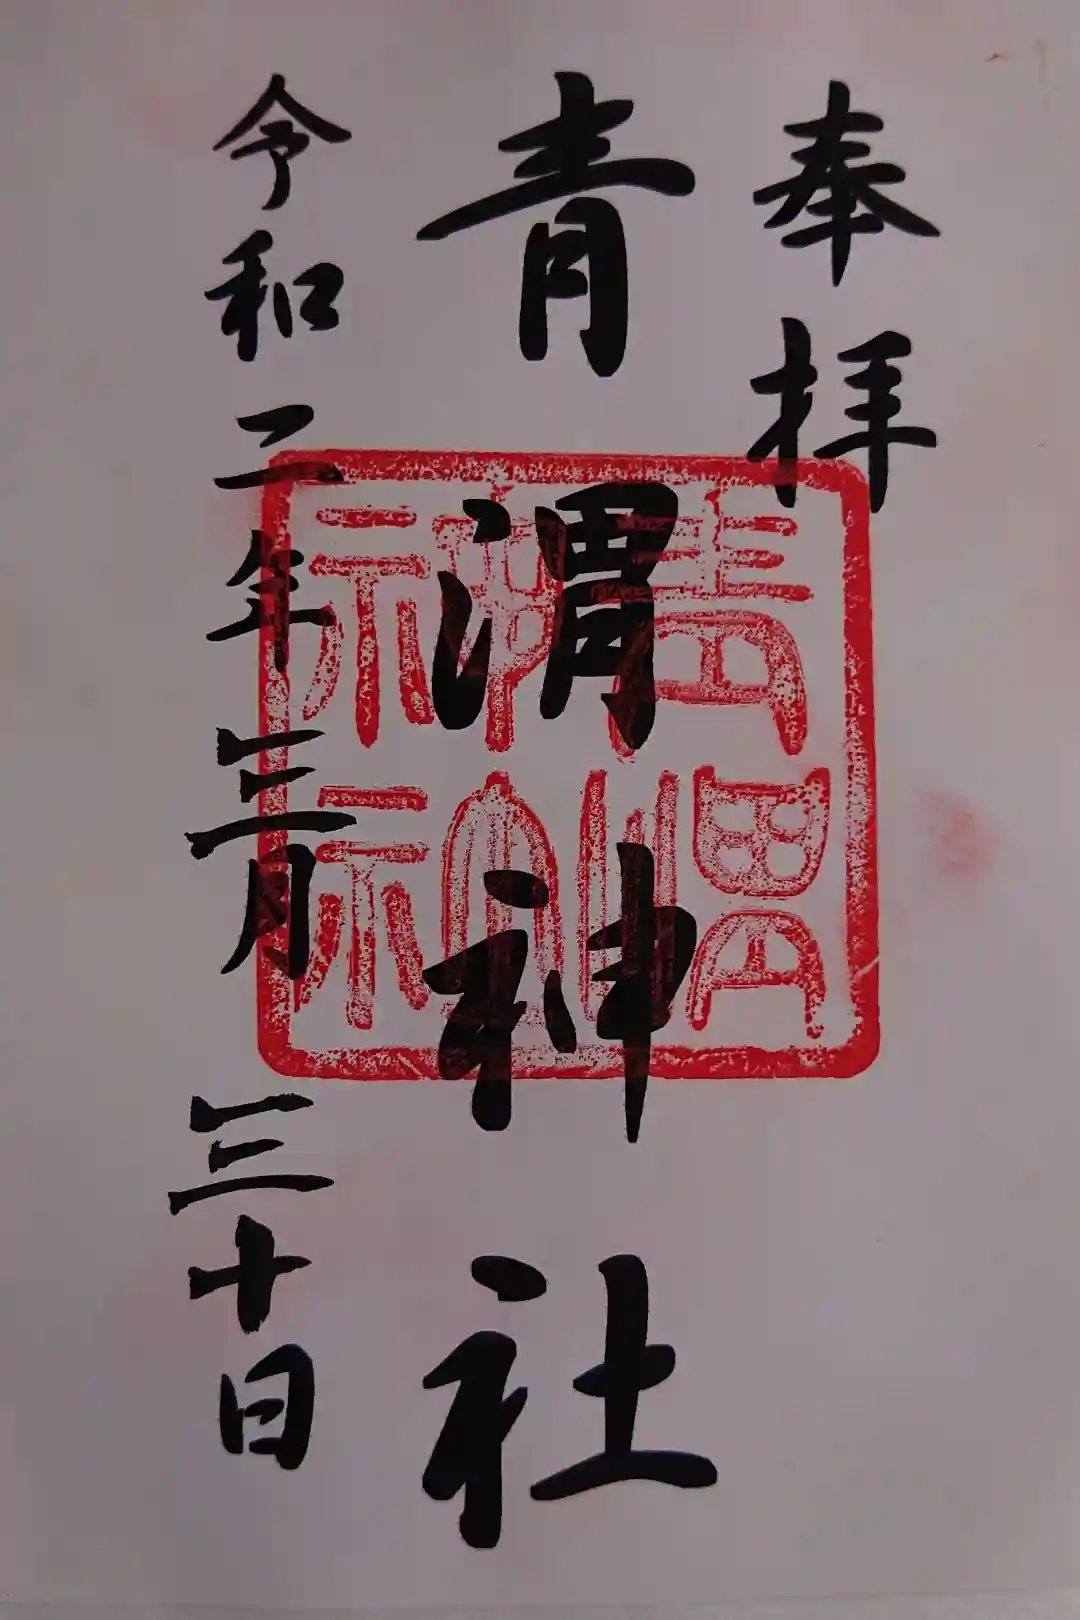 奉拝
青渭神社
令和二年三月三十日
青渭
神社